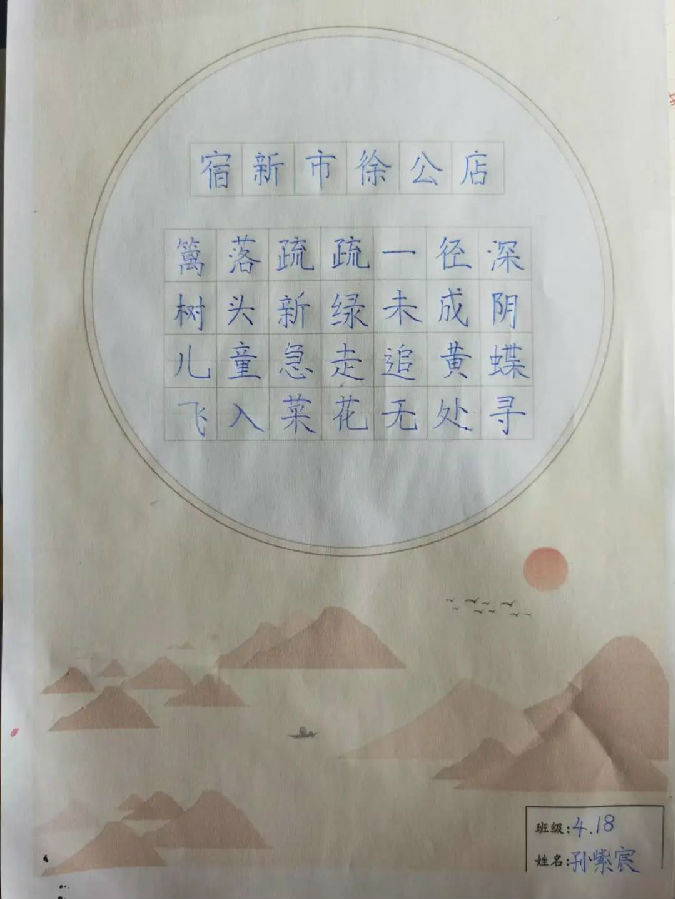 宿新市徐公店
篱落疏疏一径深
树头新绿未成阴
儿童急走追黄蝶
飞入菜花无处寻
班级:4.18
姓名:孙紫宸